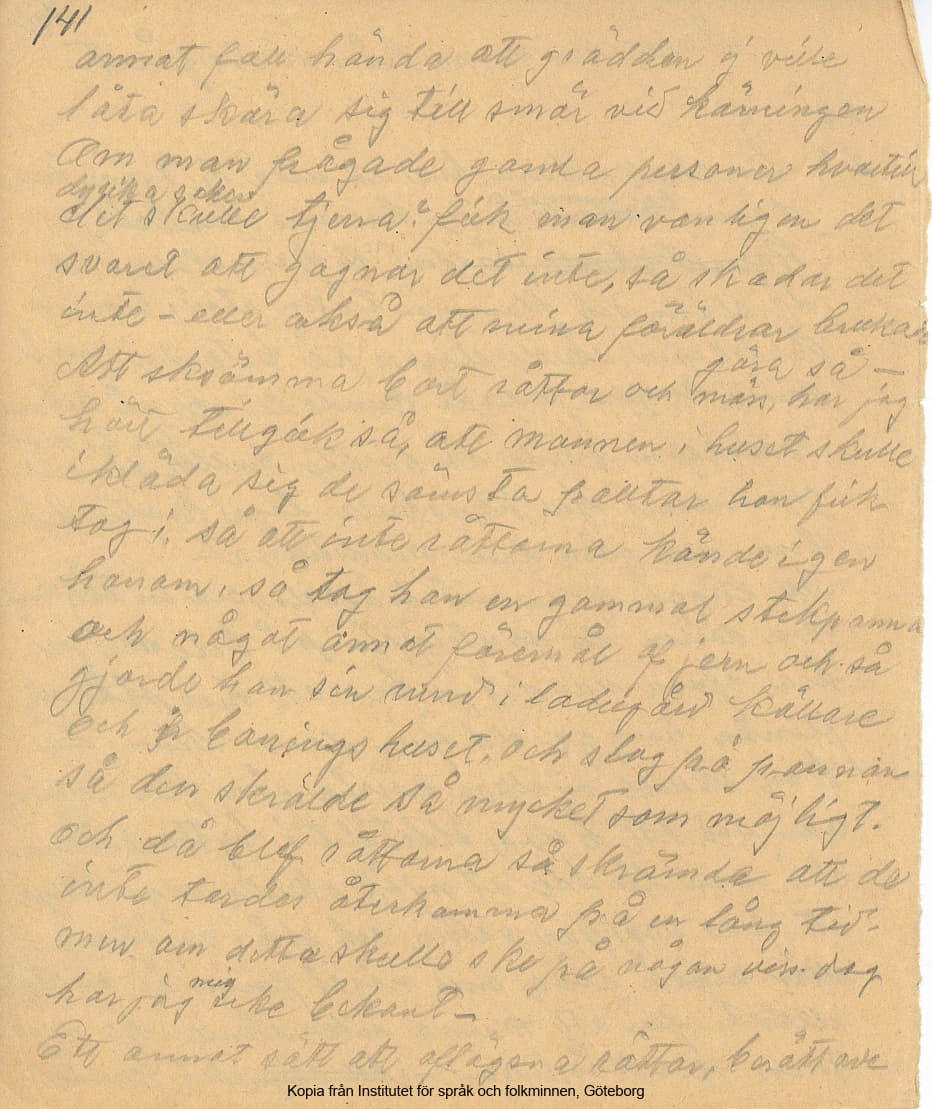 141
annat fall hända att grädden ej ville
låta skära sig till smör vid kärningen
Om man frågade gamla personer hvartill
dylika saker
det skulle tjena? fick man vanligen det
svaret att gagnar det inte, så skadar det
inte – eller också att mina föräldrar brukade
göra så –
Att skrämma bort råttor och möss, har jag
hört tillgick så, att mannen i huset skulle
ikläda sig de sämsta paltar han fick
tag i, så att inte råttorna kände igen
honom, så tog han en gammal stekpanna
och något annat föremål af jern och så
gjorde han sin rund i ladugård källare
och boningshuset, och slog på pannan
så den skrälde så mycket som möjligt.
och då blef råttorna så skrämda att de
inte tordes återkomma på en lång tid.
men om detta skulle ske på någon viss dag
mig
har jag icke bekant –
Ett annat sätt att aflägsna råttor, berättade
Kopia från Institutet för språk och folkminnen, Göteborg